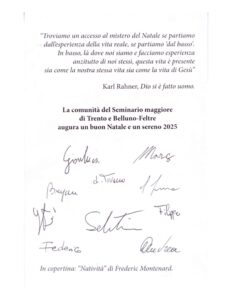 "Troviamo un accesso al mistero del Natale se partiamo
dall'esperienza della vita reale, se partiamo 'dal basso'.
In basso, là dove noi siamo e facciamo esperienza
anzitutto di noi stessi, questa vita è presente
sia come la nostra stessa vita sia come la vita di Gesù"
Karl Rahner, Dio si è fatto uomo.
La comunità del Seminario maggiore
di Trento e Belluno-Feltre
augura un buon Natale e un sereno 2025
Gianluca
Filippo
Federico
Andrea
In copertina: "Natività" di Frederic Montenard.